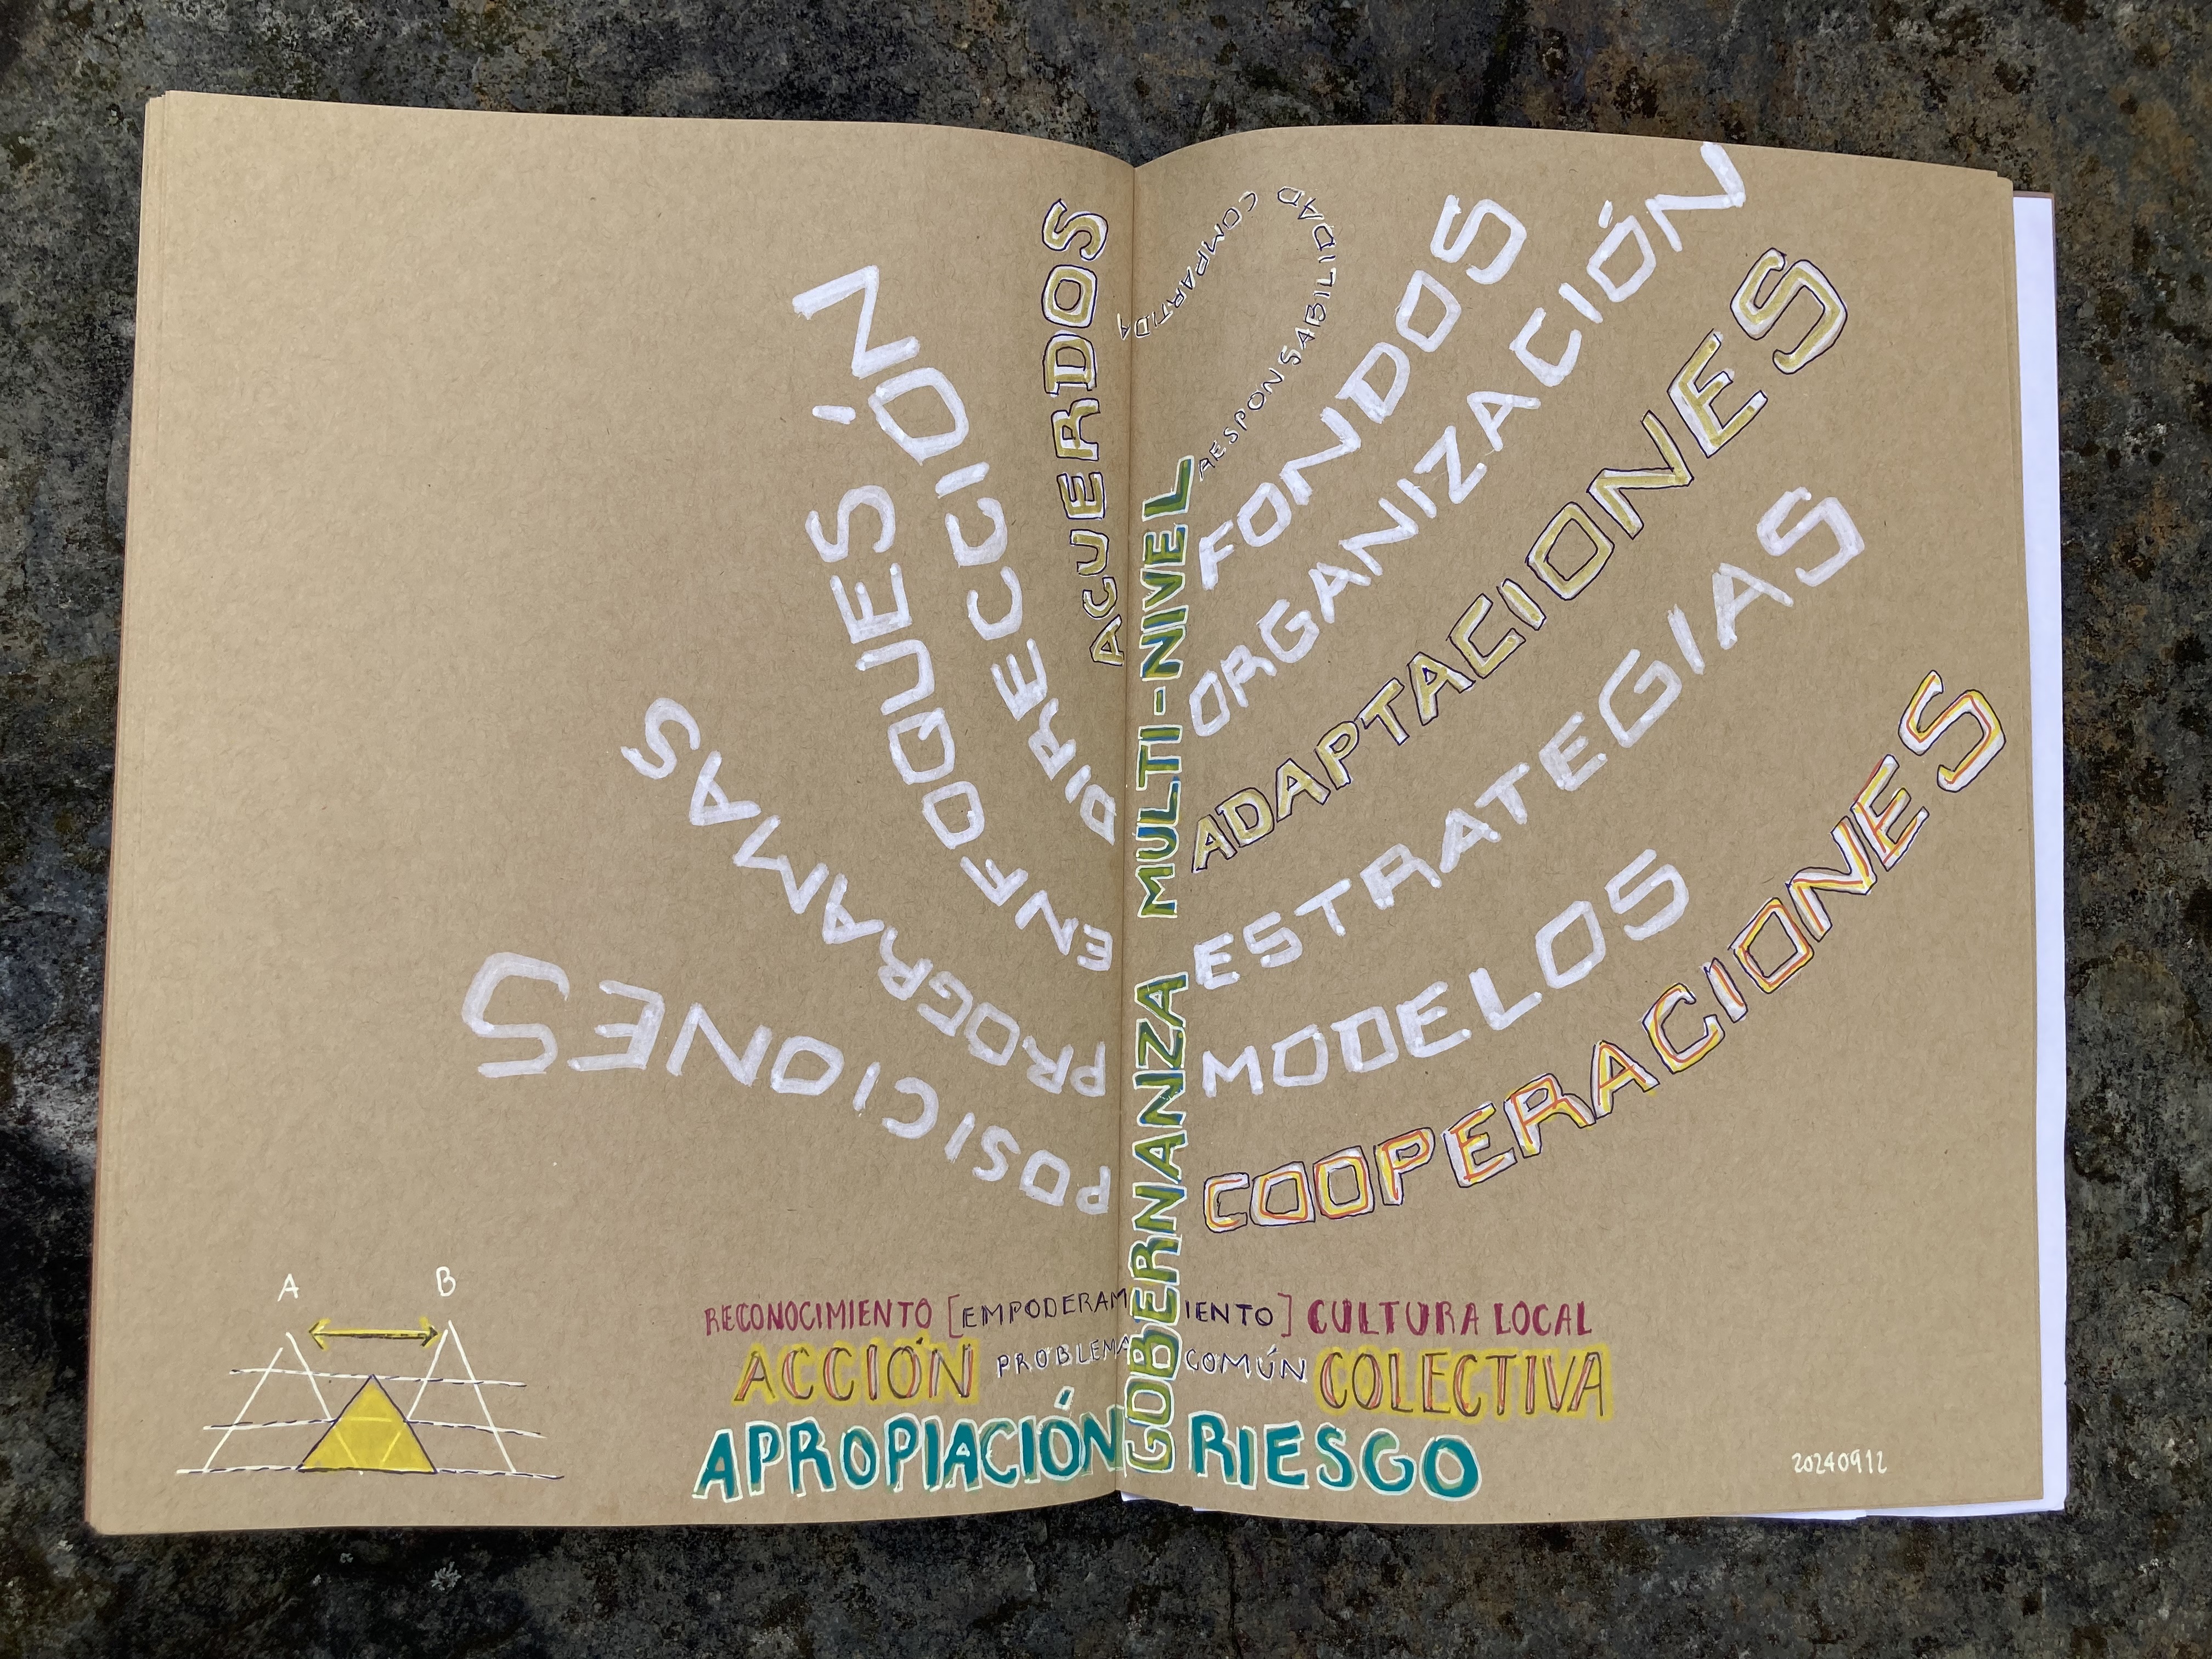 COMPARTIDA
RESPONSABILIDAD
ACUERDOS
DIRECCIÓN
ENFOQUES
PROGRAMAS
POSICIONES
FONDOS
ORGANIZACIÓN
ADAPTACIONES
ESTRATEGIAS
MODELOS
COOPERACIONES
GOBERNANZA MULTI-NIVEL
A B
RECONOCIMIENTO [EMPODERAMIENTO] CULTURA LOCAL
ACCIÓN PROBLEMA COMÚN COLECTIVA
APROPIACIÓN RIESGO
20240912